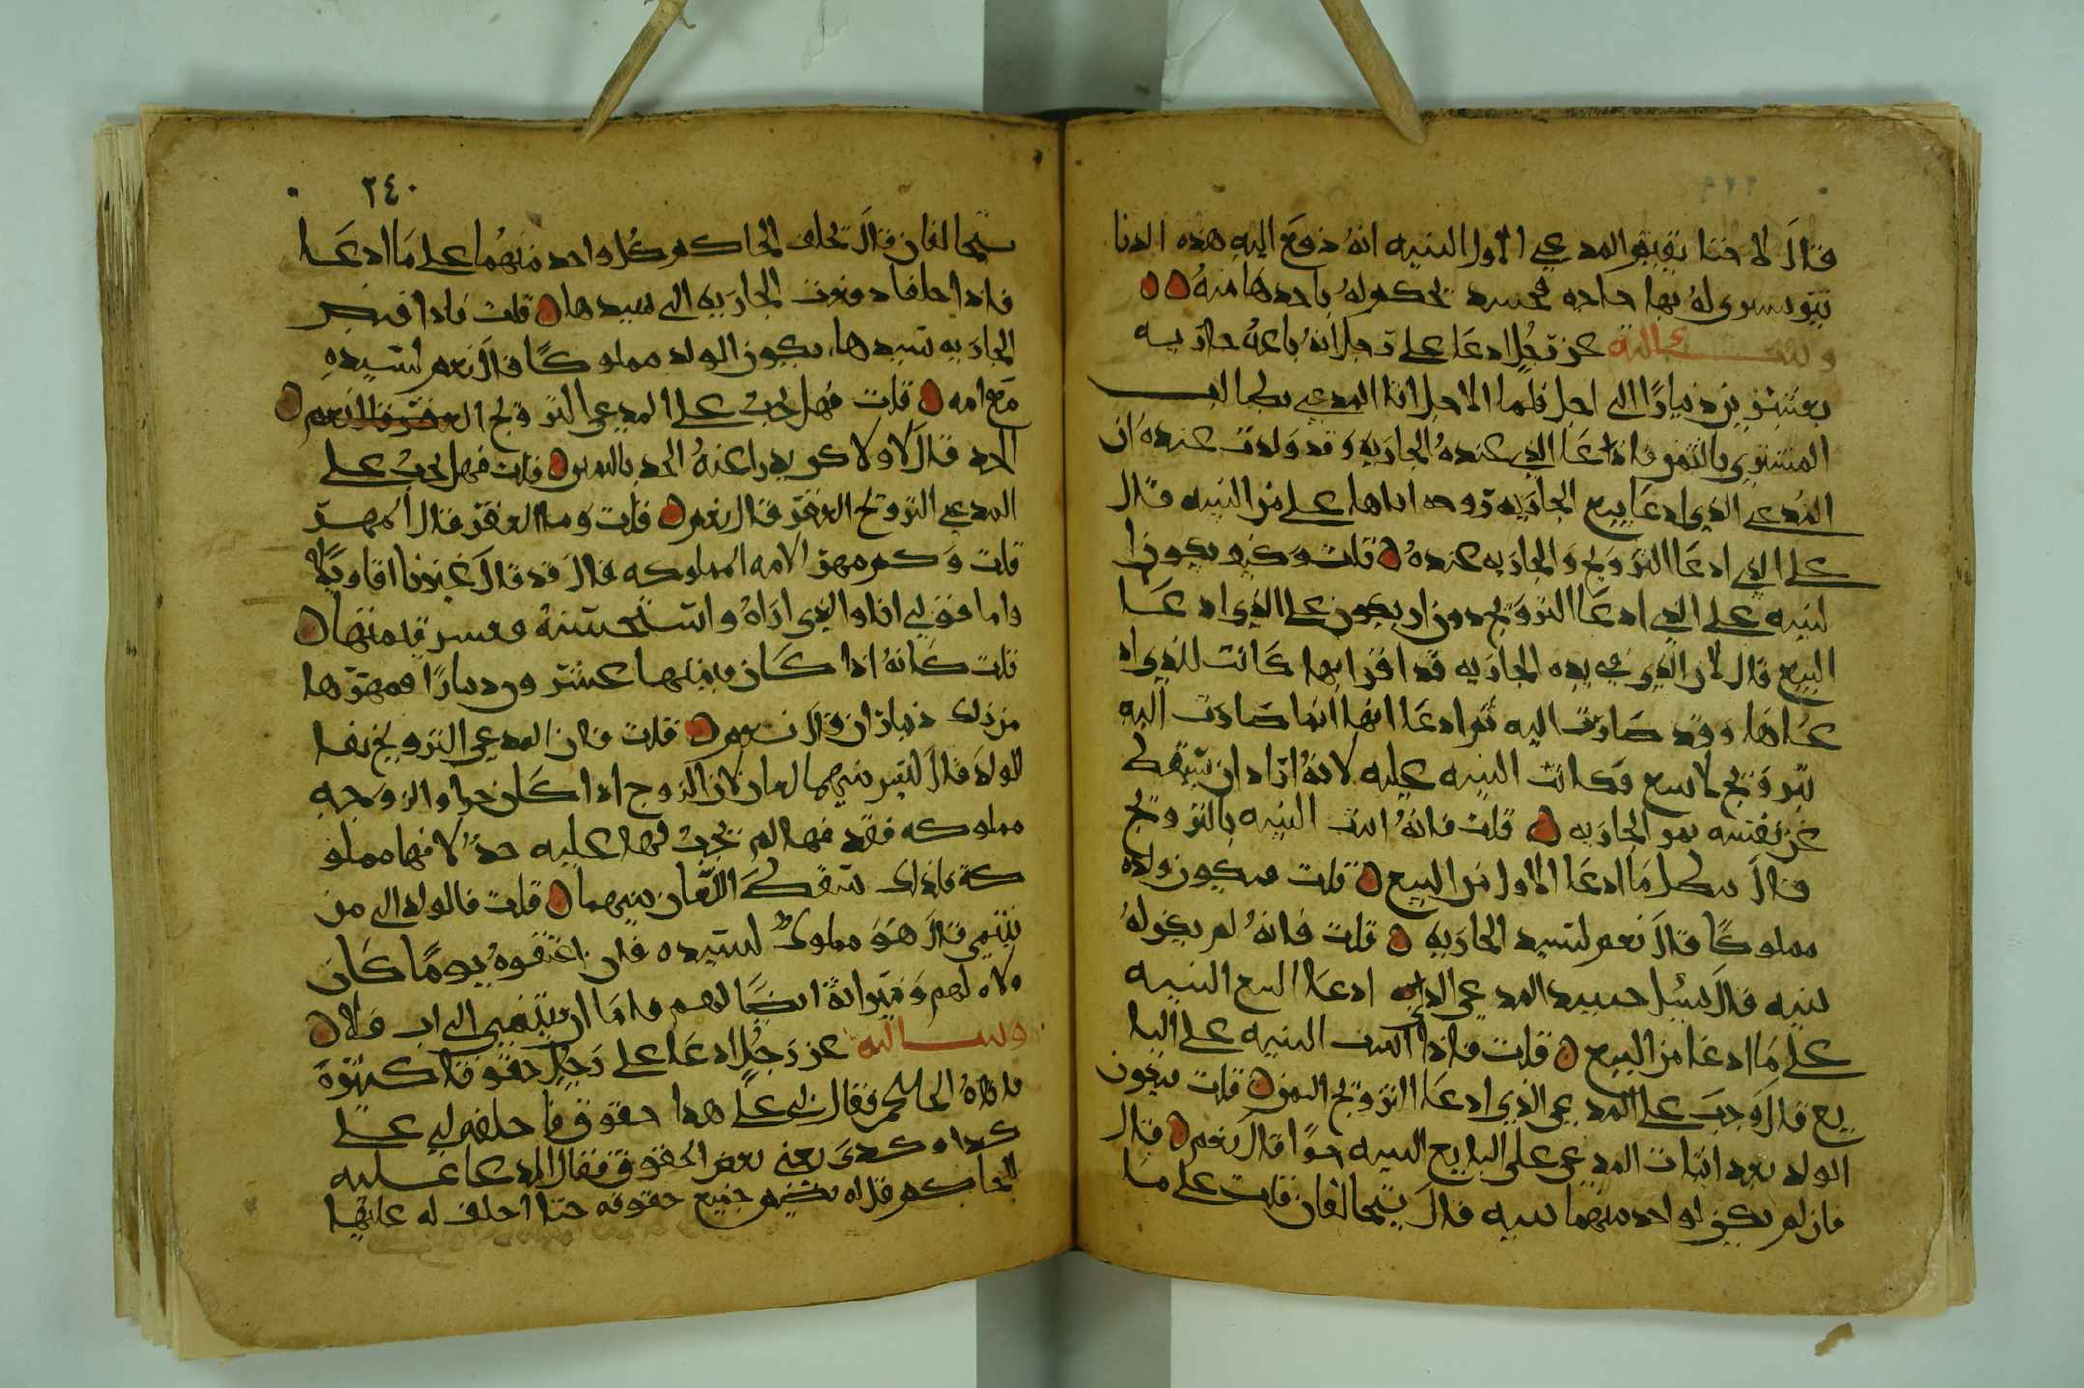 قال لا حتا يقيم المدعي الاول البنيه انه دفع اليه هذه الدنا
نير يشرى له بها حاجه فحينيد يحكم له باحدها منه
وسالته عن رجل ادعا على رجل انه باعه جاريه
بعشرين دينارًا الى اجل فلما الاجل اتا المدعي يطالب
المشترى بالثمن فادعا الذي عنده الجاريه وقد ولدت عنده ان
المدعي الذي ادعا بيع الجاريه زوجه اياها على من البنيه قال
على الذي ادعا التزويج والجاريه عنده قلت وكيف يكون ا
لبنيه على الذي ادعا التزويج دون ان يكون على الذي ادعا
البيع قال لان الذي في يده الجاريه قد اقر انها كانت للذي اد
عاها وقد صارت اليه ثم ادعا انها انما صارت اليه
بتزويج لا ببيع فكانت البنيه عليه لانه اراد ان يسقط
عن نفسه ثمن الجاريه قلت فانه اثبت البنيه بالتزويج
قال بطل ما ادعا الاول من البيع قلت فيكون ولده
مملوكًا قال نعم لسيد الجاريه قلت فانه لم يكن له
بنيه قال يسئل حينيد المدعي الذي ادعا البيع البنيه
على ما ادعا من البيع قلت فاذا اثبت البنيه على البا
يع قال وجب على المدعي الذي ادعا التزويج الثمن قلت فيكون
الولد بعد اثبات المدعي على البايع البنيه حرًا قال نعم قال
فان لم يكن لواحد منهما بنيه قال يتحالفان قلت على ما
يتحالفان قال يحلف الحاكم كل واحد منهما على ما ادعا
فاذا حلفا دفعت الجاريه الى سيدها قلت فاذا قبض
الجاريه سيدها يكون الولد مملوكًا قال نعم لسيده
مع امه قلت فهل يجب على المدعي التزويج
الحد قال لا ولاكن يدرا عنه الحد باليمين قلت فهل يجب على
المدعي التزويج العقر قال نعم قلت وما العقر قال المهر
قلت وكم مهر الامه المملوكه قال قد قال غيرنا اقاويلًا
واما قولي انا والذي اراه واستحسنه فعشر قيمتها
قلت كانه اذا كان قيمتها عشرون دينارًا فمهرها
من ذلك دينارًان قال نعم قلت فان المدعي التزويج نفا
الولد قال ليس بينهما لعان لان الزوج اذا كان حرا والزوجه
مملوكه فقذفها لم يجب لها عليه حد لانها مملو
كة فاذلك سقط اللعان بينهما قلت فالولد الى من
ينتمي قال هو مملوك لسيده فان اعتقوه يومًا كان
ولاه لهم وميراثه ايضًا لهم واما ان ينتمي الى اب فلا
وسالته عن رجل ادعا على رجل حقوقًا كثيرة
فاتاه الحاكم فقال لي على هذا حقوق فاحلفه لي على
كدا وكدى يعني بعض الحقوق فقال المدعا عليه
للحاكم قل له يضم جميع حقوقه حتا احلف له عليها
٢٤٠